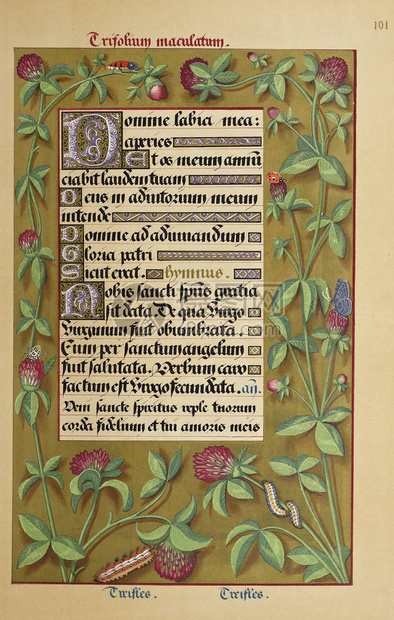 101
Trifolium maculatum.
Domine labia mea:
aperies
Et os meum annū
ciabit laudem tuam
Deus in adiutorium meum
intende
Domine ad adiuuandum
Gloria patri
Sicut erat. hymnus.
Nobis sancti spūs gratia
sit data. De qua virgo
virginum fuit obumbrata.
Cum per sanctum angelum
fuit salutata. Verbum caro
factum est virgo fecundata. añ.
Veni sancte spiritus reple tuorum
corda fidelium et tui amoris meis
Treifles. Treifles.